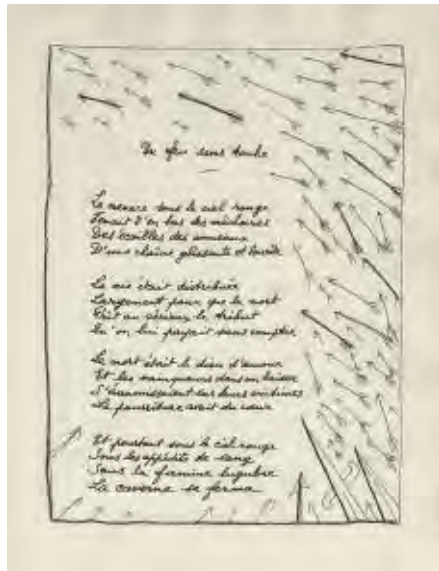 Un feu sans tache
La menace sous le ciel rouge
Venait d'en bas des mâchoires
Des écailles des anneaux
D'une chaîne glissante et lourde
La vie était distribuée
Largement pour que la mort
Prît au sérieux le tribut
Qu'on lui payait sans compter
La mort était le dieu d'amour
Et les vainqueurs dans un baiser
S'évanouissaient sur leurs victimes
La pourriture avait du cœur
Et pourtant sous le ciel rouge
Sous les appétits de sang
Sous la famine lugubre
La caverne se ferma